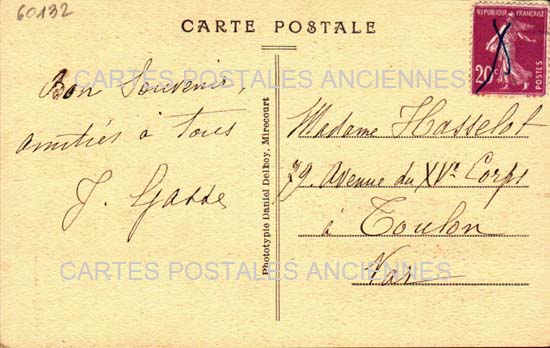 60132
CARTE POSTALE
REPUBLIQUE FRANÇAISE
20c
POSTES
CARTES POSTALES ANCIENNES
Bon Souvenir,
amitiés à tous
J. Gasse
Phototypie Daniel Delboy, Mirecourt
Madame Hasselot
79. Avenue du XVe Corps
à Toulon
Var
CARTES POSTALES ANCIENNES